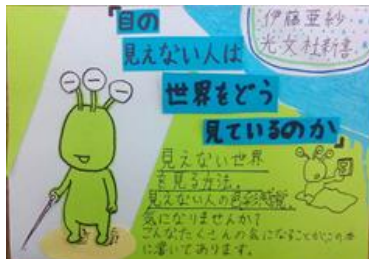 『目の
見えない人は
世界をどう
見ているのか』
伊藤亜紗
光文社新書
見えない世界
を見る方法。
見えない人の色彩感覚。
気になりませんか？
こんなたくさんの気になることがこの本
に書いてあります。